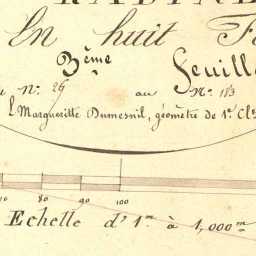 En huit
3ème Feuille
N°. 26 au N°. 183
Margueritte Dumesnil, géomètre de 1re. Cl
80 90 100
Echelle d'1m. à 1,000m